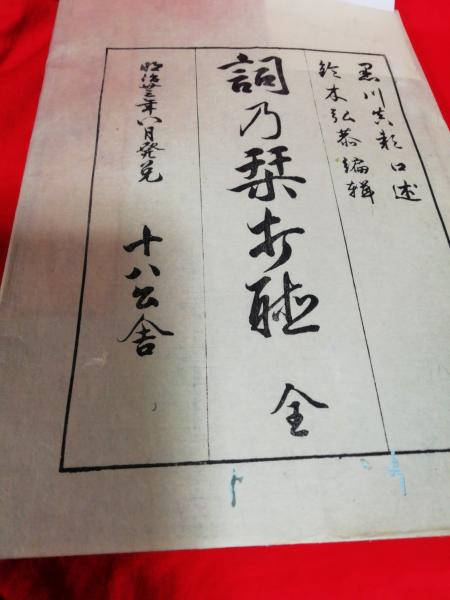 黒川真頼口述
鈴木弘恭編輯
詞乃栞打聴 全
明治廿三年八月発兌
十八公舎